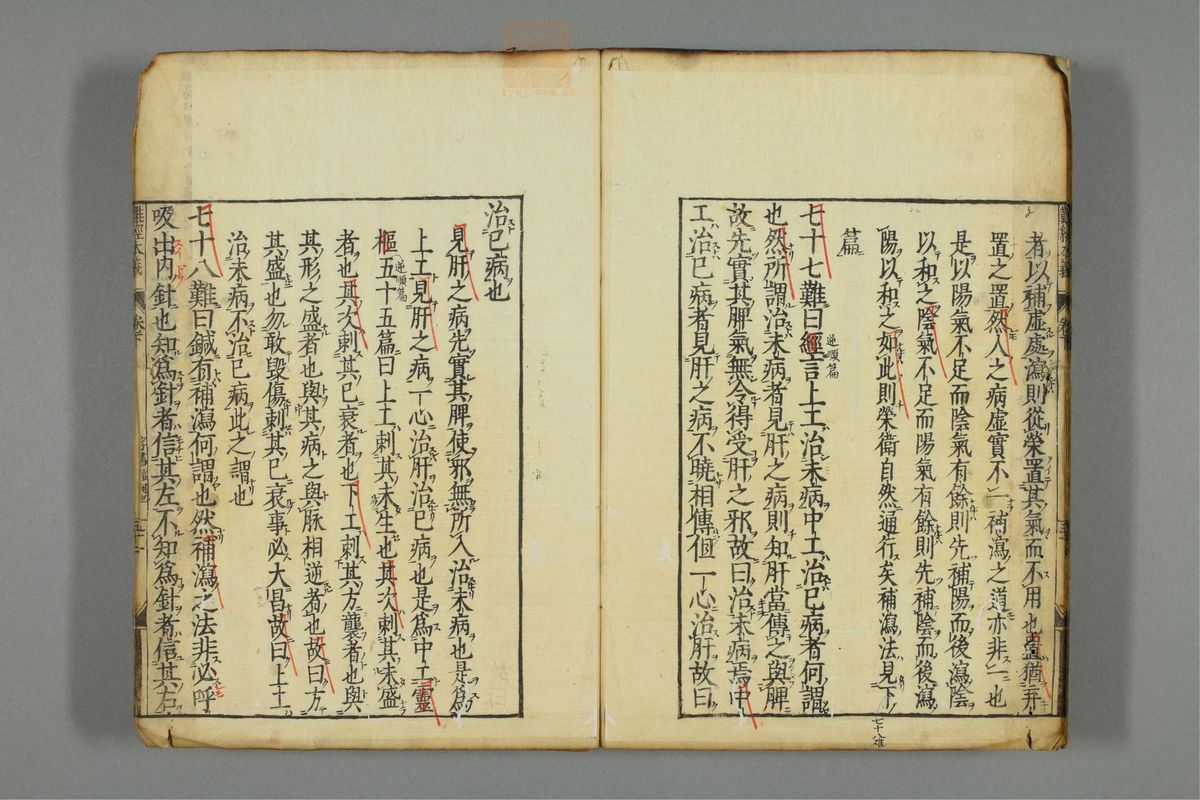 者以補虛處瀉則從榮置其氣而不用也置猶弃
置之置然人之病虛實不一補瀉之道亦非一也
是以陽氣不足而陰氣有餘則先補陽而後瀉陰
以和之陰氣不足而陽氣有餘則先補陰而後瀉
陽以和之如此則榮衛自然通行矣補瀉法見下
七十八難
篇
七十七難曰經言上工治未病中工治已病者何謂
逆順篇
也然所謂治未病者見肝之病則知肝當傳之與脾
故先實其脾氣無令得受肝之邪故曰治未病焉中
工治已病者見肝之病不曉相傳但一心治肝故曰
治已病也
見肝之病先實其脾使邪無所入治未病也是爲
上工見肝之病一心治肝治已病也是爲中工靈
樞五十五篇曰上工刺其未生也其次刺其未盛
逆順篇
者也其次刺其已衰者也下工刺其方襲者也與
其形之盛者也與其病之與脉相逆者也故曰方
其盛也勿敢毀傷刺其已衰事必大昌故曰上工
治未病不治已病此之謂也
七十八難曰鍼有補瀉何謂也然補瀉之法非必呼
吸出內針也知爲針者信其左不知爲針者信其右
難經本義